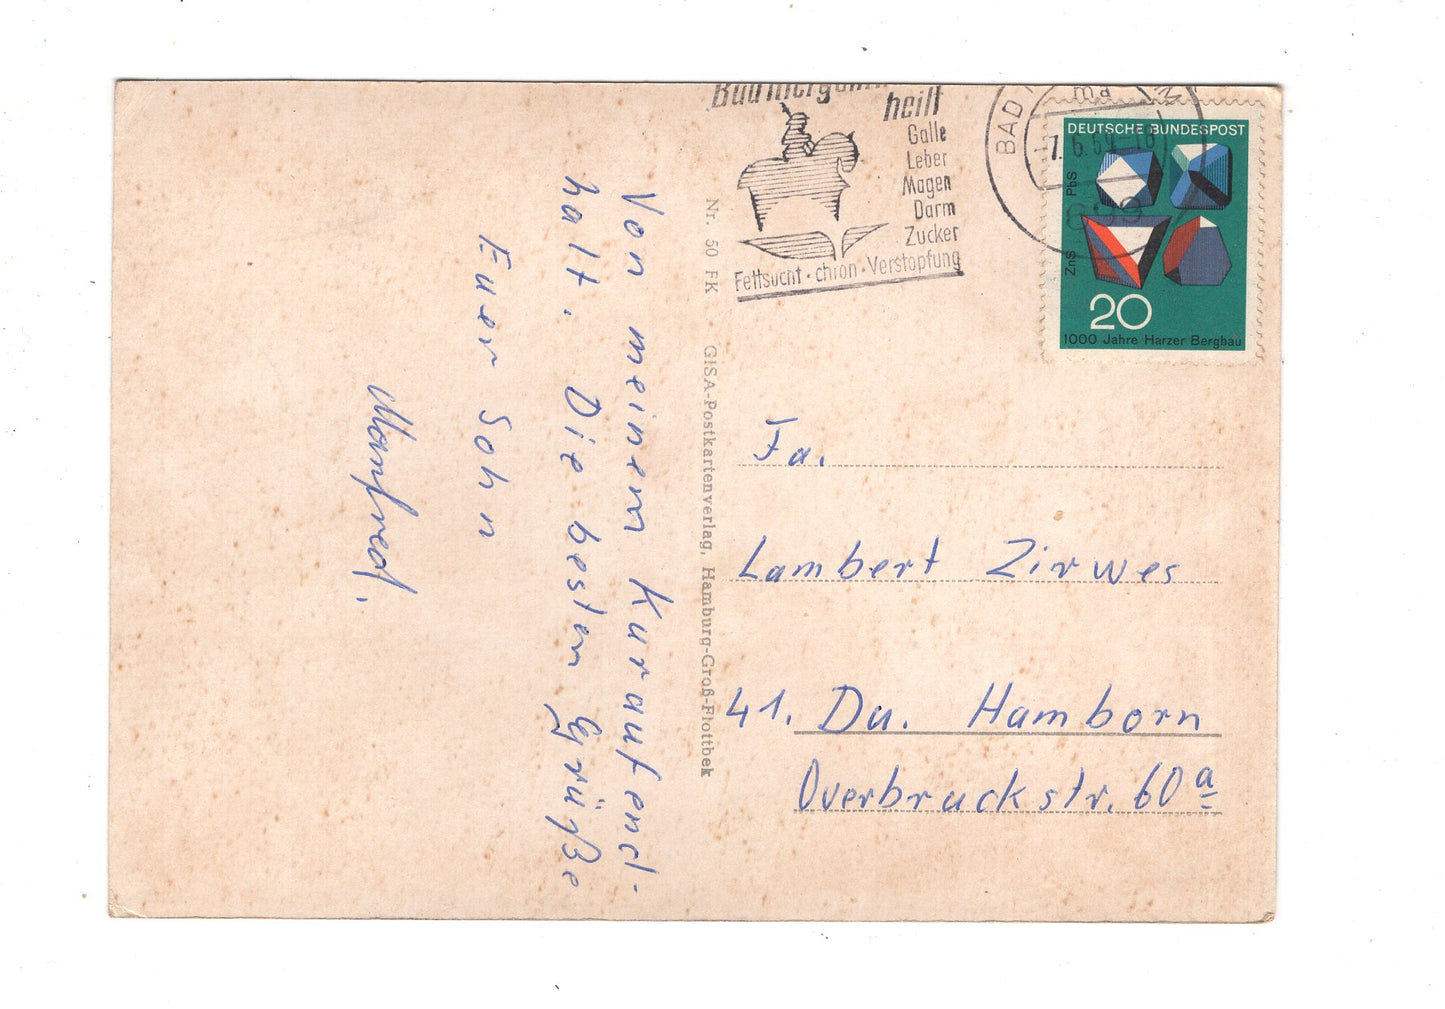 Von meinem Kuraufend-
halt. Die besten Grüße
Euer Sohn
Manfred.
Nr. 50 FK GISA-Postkartenverlag, Hamburg-Groß-Flottbek
Bad Mergentheim
heilt
Galle
Leber
Magen
Darm
Zucker
Fettsucht · chron · Verstopfung
BAD
ma
6.69-18
699
DEUTSCHE BUNDESPOST
PbS
ZnS
20
1000 Jahre Harzer Bergbau
Fa.
Lambert Zirwes
41. Du. Hamborn
Overbruckstr. 60a